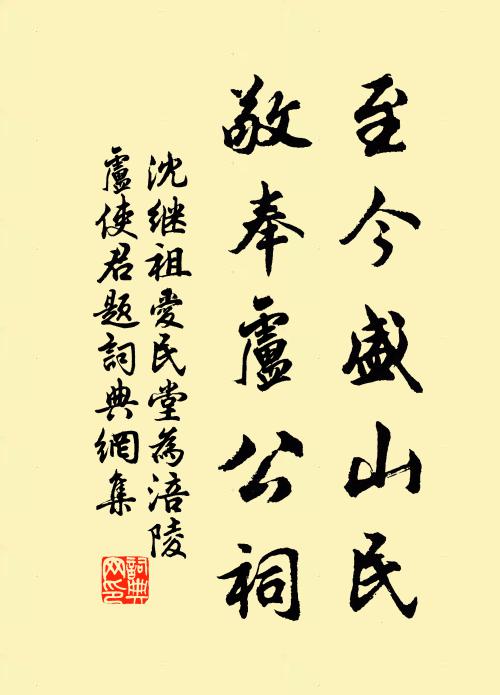 至今盛山民
敬奉盧公祠
沈继祖愛民堂為涪陵
盧使君题詞典網集
詞典网印